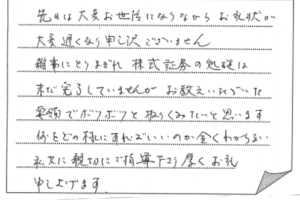 先日は大変お世話になりながら お礼状が
大変遅くなり申し訳ございません
雑事にとりまぎれ 株式証券の処理は
まだ完了していませんが お教えいただいた
要領でボツボツと取りくみたいと思います
何をどの様にすればいいのか全くわからない
私共に親切にご指導下さり厚くお礼
申し上げます